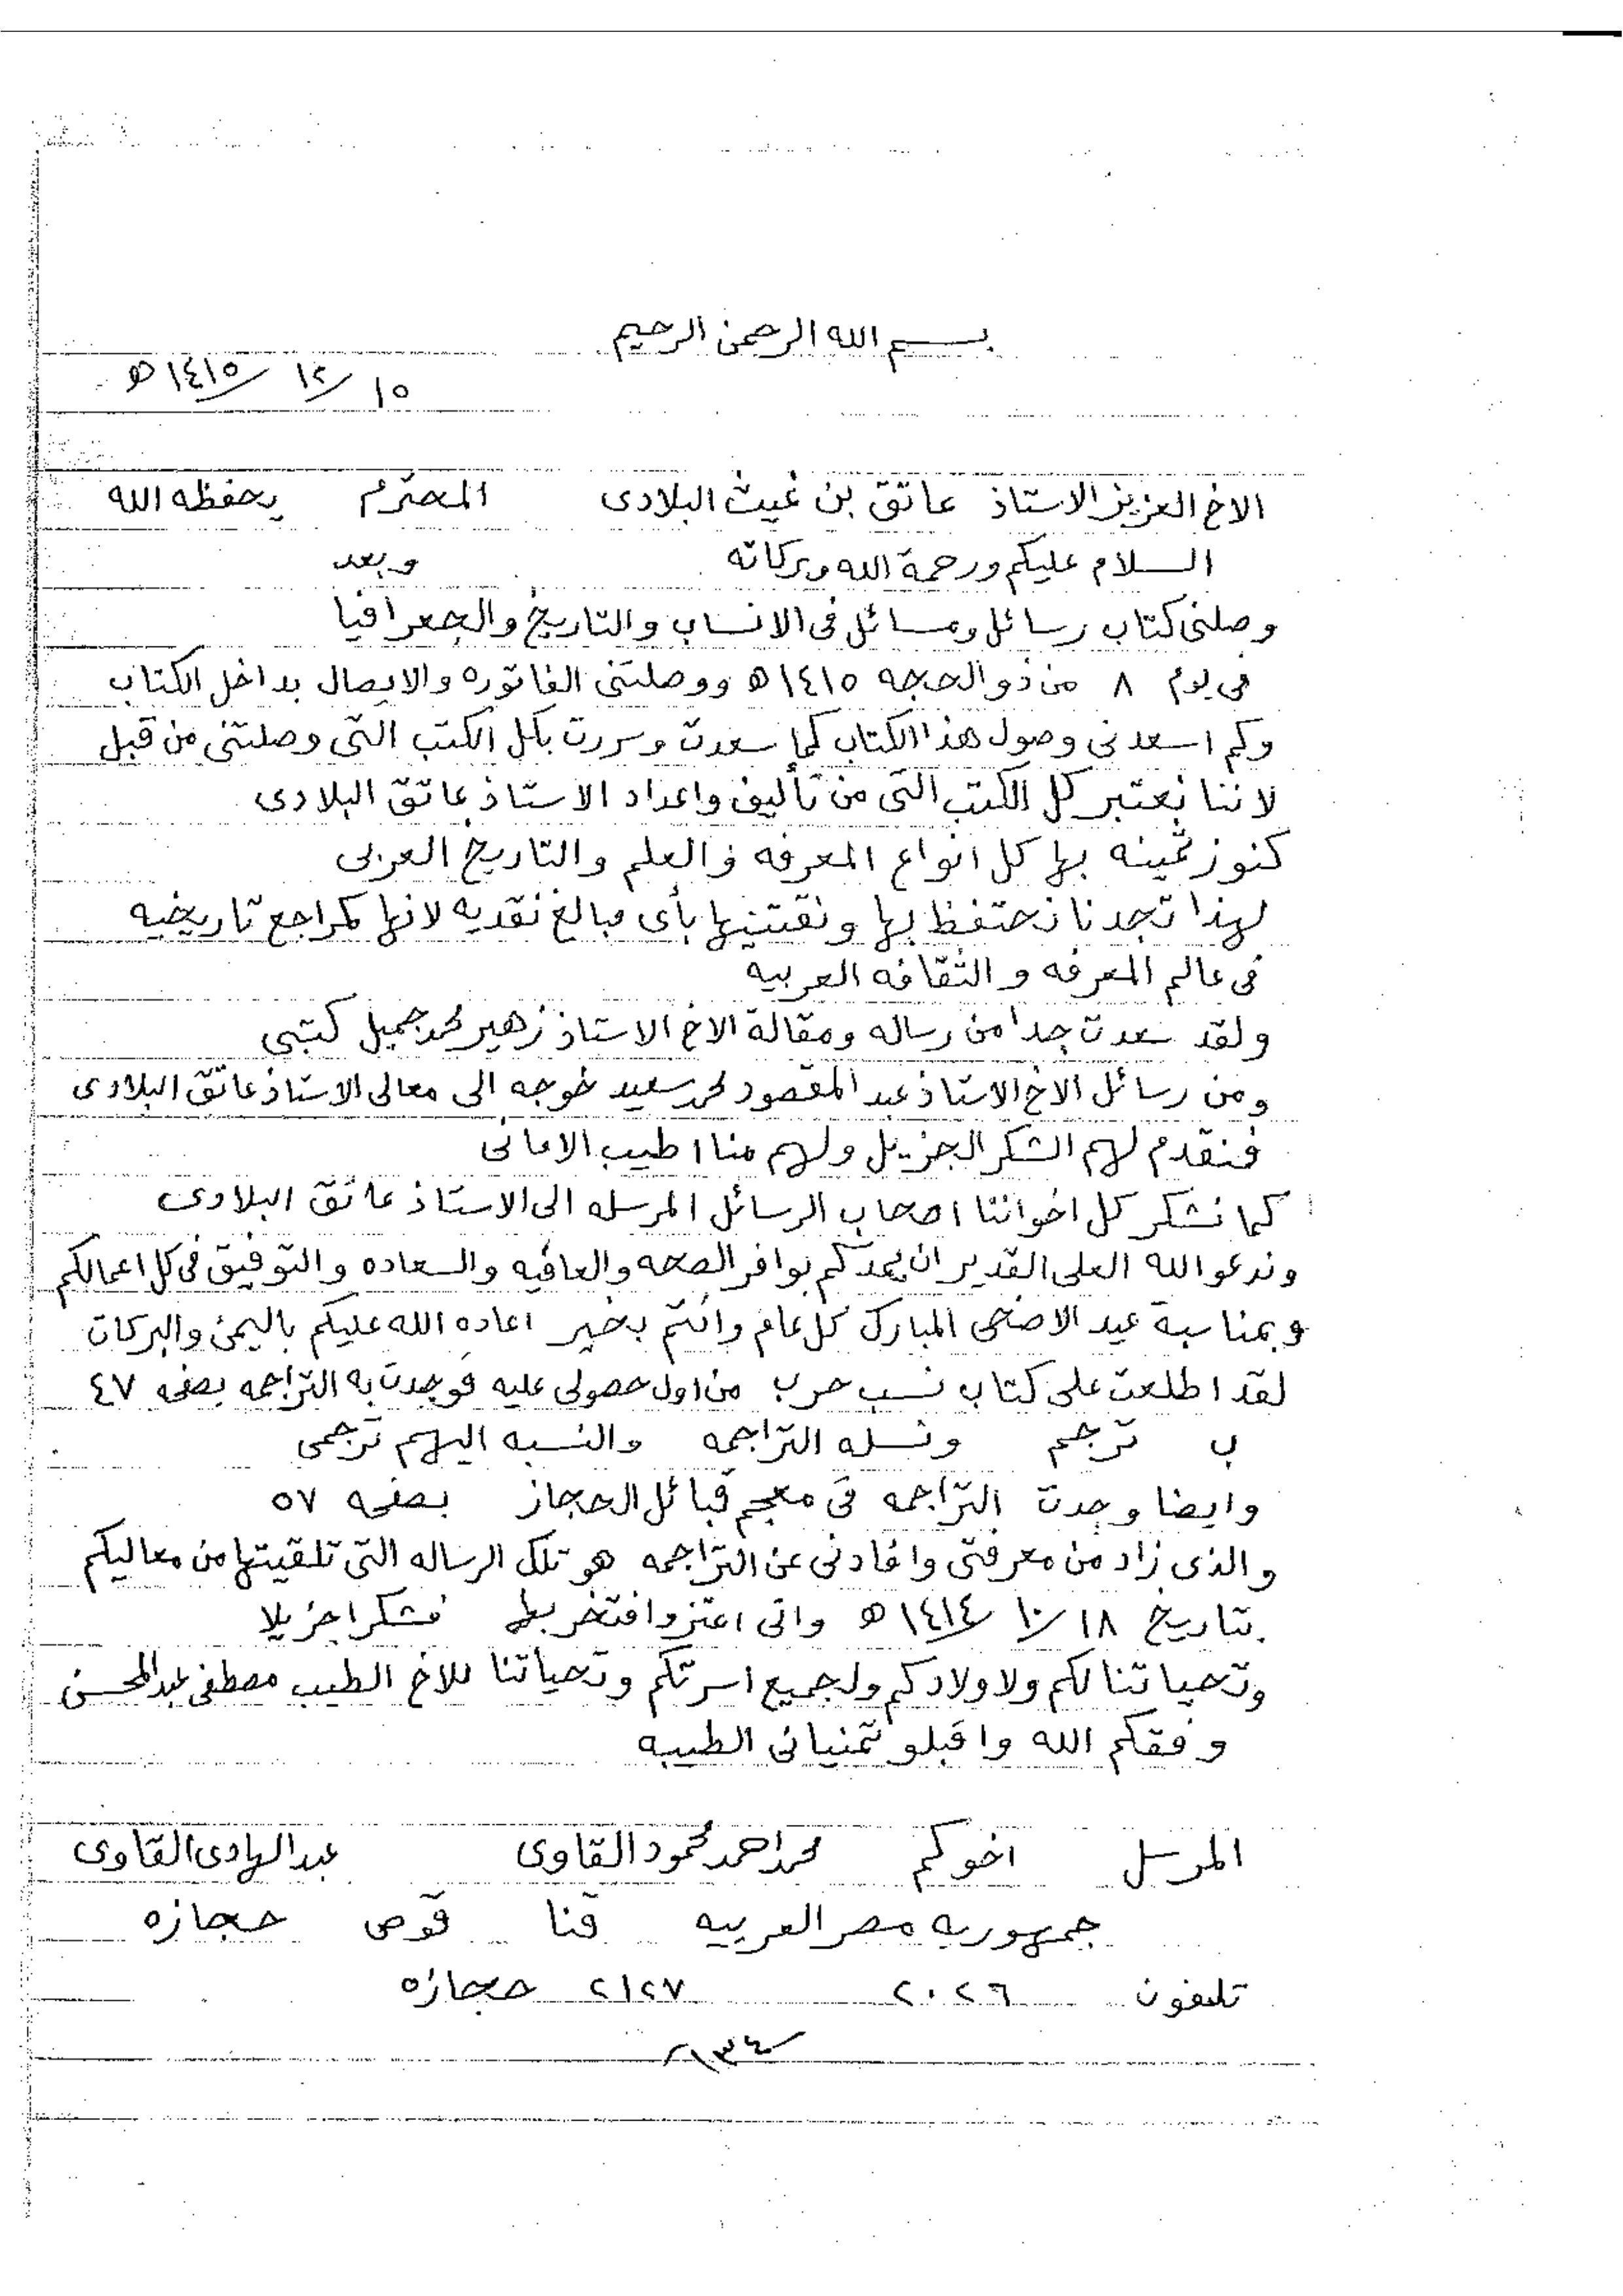 بسم الله الرحمن الرحيم
١٥/ ١٢/ ١٤١٥ ه
الاخ العزيز الاستاذ عاتق بن غيث البلادى المحترم يحفظه الله
السلام عليكم ورحمة الله وبركاته وبعد
وصلنى كتاب رسائل ومسائل فى الانساب والتاريخ والجعرافيا
فى يوم ٨ من ذو الحجه ١٤١٥ ه ووصلتنى الفاتوره والايصال بداخل الكتاب
وكم اسعدنى وصول هذا الكتاب كما سعدت وسررت بكل الكتب التى وصلتنى من قبل
لاننا نعتبر كل الكتب التى من تأليف واعداد الاستاذ عاتق البلادى
كنوز ثمينه بها كل انواع المعرفه والعلم والتاريخ العربى
لهذا تجدنا نحتفظ بها ونقتنيها بأى مبالغ نقديه لانها كمراجع تاريخيه
فى عالم المعرفه والثقافه العربيه
ولقد سعدت جدا من رساله ومقالة الاخ الاستاذ زهير محمد جميل كتبى
ومن رسائل الاخ الاستاذ عبد المقصود محمد سعيد خوجه الى معالى الاستاذ عاتق البلادى
فنقدم لهم الشكر الجزيل ولهم منا اطيب الامانى
كما نشكر كل اخواننا اصحاب الرسائل المرسله الى الاستاذ عاتق البلادى
وندعو الله العلى القدير ان يمدكم بوافر الصحه والعافيه والسعاده والتوفيق فى كل اعمالكم
وبمناسبة عيد الاضحى المبارك كل عام وانتم بخير اعاده الله عليكم باليمن والبركات
لقد اطلعت على كتاب نسب حرب من اول حصولى عليه فوجدت به التراجمه بصفحه ٤٧
ب ترجم ونسله التراجمه والنسبه اليهم ترجمى
وايضا وجدت التراجمه فى معجم قبائل الحجاز بصفحه ٥٧
والذى زاد من معرفتى وافادنى عن التراجمه هو تلك الرساله التى تلقيتها من معاليكم
بتاريخ ١٨/ ١٠/ ١٤١٤ ه وانى اعتز وافتخر بها فشكرا جزيلا
وتحياتنا لكم ولاولادكم ولجميع اسرتكم وتحياتنا للاخ الطيب مصطفى عبد المحسن
وفقكم الله واقبلو تمنياتى الطيبه
المرسل اخوكم محمد احمد محمود القاوى عبد الهادى القاوى
جمهوريه مصر العربيه قنا قوص حجازه
تلفون ٢٠٢٦ ٢١٢٧ حجازه